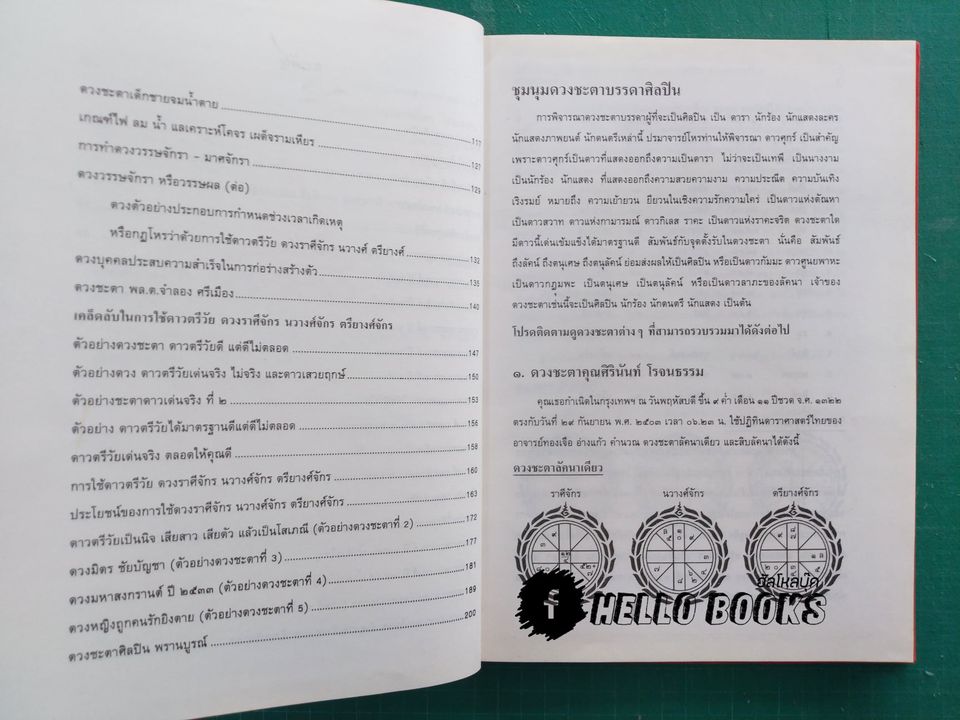 ดวงชะตาเด็กชายจมน้ำตาย
เกณฑ์ไฟ ลม น้ำ และเคราะห์โคจร เผด็จรามเหียร 117
การทำดวงวรรษจักรา - มาศจักรา 127
ดวงวรรษจักรา หรือวรรษผล (ต่อ) 129
ดวงตัวอย่างประกอบการกำหนดช่วงเวลาเกิดเหตุ
หรือกฎโหรว่าด้วยการใช้ดาวตรีวัย ดวงราศีจักร นวางศ์ ตรียางศ์ 132
ดวงบุคคลประสบความสำเร็จในการก่อร่างสร้างตัว 135
ดวงชะตา พล.ต.จำลอง ศรีเมือง 140
เคล็ดลับในการใช้ดาวตรีวัย ดวงราศีจักร นวางศ์จักร ตรียางศ์จักร
ตัวอย่างดวงชะตา ดาวตรีวัยดี แต่ดีไม่ตลอด 147
ตัวอย่างดวง ดาวตรีวัยเด่นจริง ไม่จริง และดาวเสวยฤกษ์ 150
ตัวอย่างชะตาดาวเด่นจริง ที่ ๒ 153
ตัวอย่าง ดาวตรีวัยได้มาตรฐานดีแต่ดีไม่ตลอด 156
ดาวตรีวัยเด่นจริง ตลอดให้คุณดี 158
การใช้ดาวตรีวัย ดวงราศีจักร นวางศ์จักร ตรียางศ์จักร 160
ประโยชน์ของการใช้ดวงราศีจักร นวางศ์จักร ตรียางศ์จักร 163
ดาวตรีวัยเป็นนิจ เสียสาว เสียตัว แล้วเป็นโสเภณี (ตัวอย่างดวงชะตาที่ 2) 172
ดวงมิตร ชัยบัญชา (ตัวอย่างดวงชะตาที่ 3) 177
ดวงมหาสงกรานต์ ปี ๒๕๓๓ (ตัวอย่างดวงชะตาที่ 4) 181
ดวงหญิงถูกคนรักยิงตาย (ตัวอย่างดวงชะตาที่ 5) 189
ดวงชะตาศิลปิน พรานบูรณ์ 200
ชุมนุมดวงชะตาบรรดาศิลปิน
การพิจารณาดวงชะตาบรรดาผู้ที่จะเป็นศิลปิน เป็น ดารา นักร้อง นักแสดงละคร
นักแสดงภาพยนต์ นักดนตรีเหล่านี้ ปรมาจารย์โหรท่านให้พิจารณา ดาวศุกร์ เป็นสำคัญ
เพราะดาวศุกร์เป็นดาวที่แสดงออกถึงความเป็นดารา ไม่ว่าจะเป็นเทพี เป็นนางงาม
เป็นนักร้อง นักแสดง ที่แสดงออกถึงความสวยความงาม ความประณีต ความบันเทิง
เริงรมย์ หมายถึง ความเย้ายวน ยียวนในเชิงความรักความใคร่ เป็นดาวแห่งตัณหา
เป็นดาวสวาท ดาวแห่งกามารมณ์ ดาวกิเลส ราคะ เป็นดาวแห่งราคะจริต ดวงชะตาใด
มีดาวนี้เด่นเข้มแข็งได้มาตรฐานดี สัมพันธ์กับจุดตั้งรับในดวงชะตา นั่นคือ สัมพันธ์
ถึงลัคน์ ถึงตนุเศษ ถึงตนุลัคน์ ย่อมส่งผลให้เป็นศิลปิน หรือเป็นดาวกัมมะ ดาวศูนยพาหะ
เป็นดาวกฎุมพะ เป็นตนุเศษ เป็นตนุลัคน์ หรือเป็นดาวลาภะของลัคนา เจ้าของ
ดวงชะตาเช่นนี้จะเป็นศิลปิน นักร้อง นักดนตรี นักแสดง เป็นต้น
โปรดติดตามดูดวงชะตาต่าง ๆ ที่สามารถรวบรวมมาได้ดังต่อไป
๑. ดวงชะตาคุณศิรินันท์ โรจนธรรม
คุณเธอกำเนิดในกรุงเทพฯ ณ วันพฤหัสบดี ขึ้น ๙ ค่ำ เดือน ๑๑ ปีชวด จ.ศ. ๑๓๒๒
ตรงกับวันที่ ๒๙ กันยายน พ.ศ. ๒๕๐๓ เวลา ๐๖.๒๓ น. ใช้ปฏิทินดาราศาสตร์ไทยของ
อาจารย์ทองเจือ อ่างแก้ว คำนวณ ดวงชะตาลัคนาเดียว และสิบลัคนาได้ดังนี้
ดวงชะตาลัคนาเดียว
ราศีจักร นวางศ์จักร ตรียางศ์จักร
ฮัลโหลบุ๊ค
HELLO BOOKS